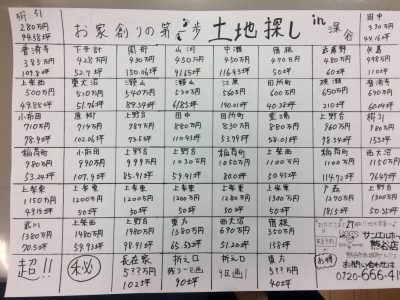 櫛引
280万円
44.58坪
お家創りの第一歩 土地探し in 深谷
田中
330万円
44.16坪
普済寺
385万円
109.8坪
下手計
428万円
52.7坪
岡部
430万円
150.06坪
山河
450万円
91.65坪
中瀬
450万円
116.93坪
宿根
450万円
50坪
武蔵野
480万円
60坪
矢島
498万円
110坪
上柴西
500万円
49.88坪
東大沼
510万円
51.76坪
瀬山
540万円
84.34坪
瀬山
530万円
61.85坪
江原
550万円
140.01坪
田所町
580万円
40.38坪
横瀬
600万円
210坪
普済寺
650万円
60.04坪
小前田
710万円
78.90坪
原郷
710万円
102.06坪
上野台
740万円
73.5坪
田中
800万円
110.43坪
田所町
830万円
53.39坪
萱場
880万円
58.08坪
上野台
880万円
78.34坪
櫛引
780万円
153坪
稲荷町
980万円
53.24坪
原郷
990万円
107.9坪
上野台
999万円
85.91坪
上野台
1030万円
59.41坪
稲荷町
1050万円
80.14坪
上柴西
1100万円
50.45坪
稲荷町
1130万円
114.72坪
西大沼
1150万円
76.67坪
上柴東
1150万円
49.13坪
上柴東
1200万円
50坪
上柴東
1200万円
50坪
上柴東
1200万円
50坪
上柴東
1200万円
50坪
上柴東
1300万円
50坪
戸森
1290万円
181.5坪
上柴西
1330万円
50.35坪
武川
1380万円
70.53坪
上野台
1480万円
59.93坪
上野台
1480万円
98.91坪
東方
1580万円
65.53坪
西大沼
690万円
51.20坪
宿根
350万円
158坪
おかげさまで27周年
サンエルホーム
熊谷店
お問い合わせは
0720-666-41
超!!
㊙
長在家
5??万円
102坪
折之口
残り一区画
90坪
折之口
9区画!
東方
5??万円
40坪